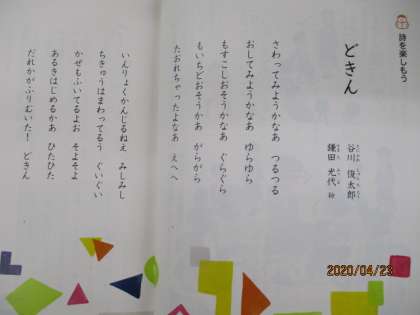 詩を楽しもう
どきん
谷川 俊太郎
たにかわ しゅんたろう
鎌田 光代 絵
さわってみようかなあ つるつる
おしてみようかなあ ゆらゆら
もすこしおそうかなあ ぐらぐら
もいちどおそうかあ がらがら
たおれちゃったよなあ えへへ
いんりょくかんじるねえ みしみし
ちきゅうはまわってるう ぐいぐい
かぜもふいてるよお そよそよ
あるきはじめるかあ ひたひた
だれかがふりむいた！ どきん
2020/04/23